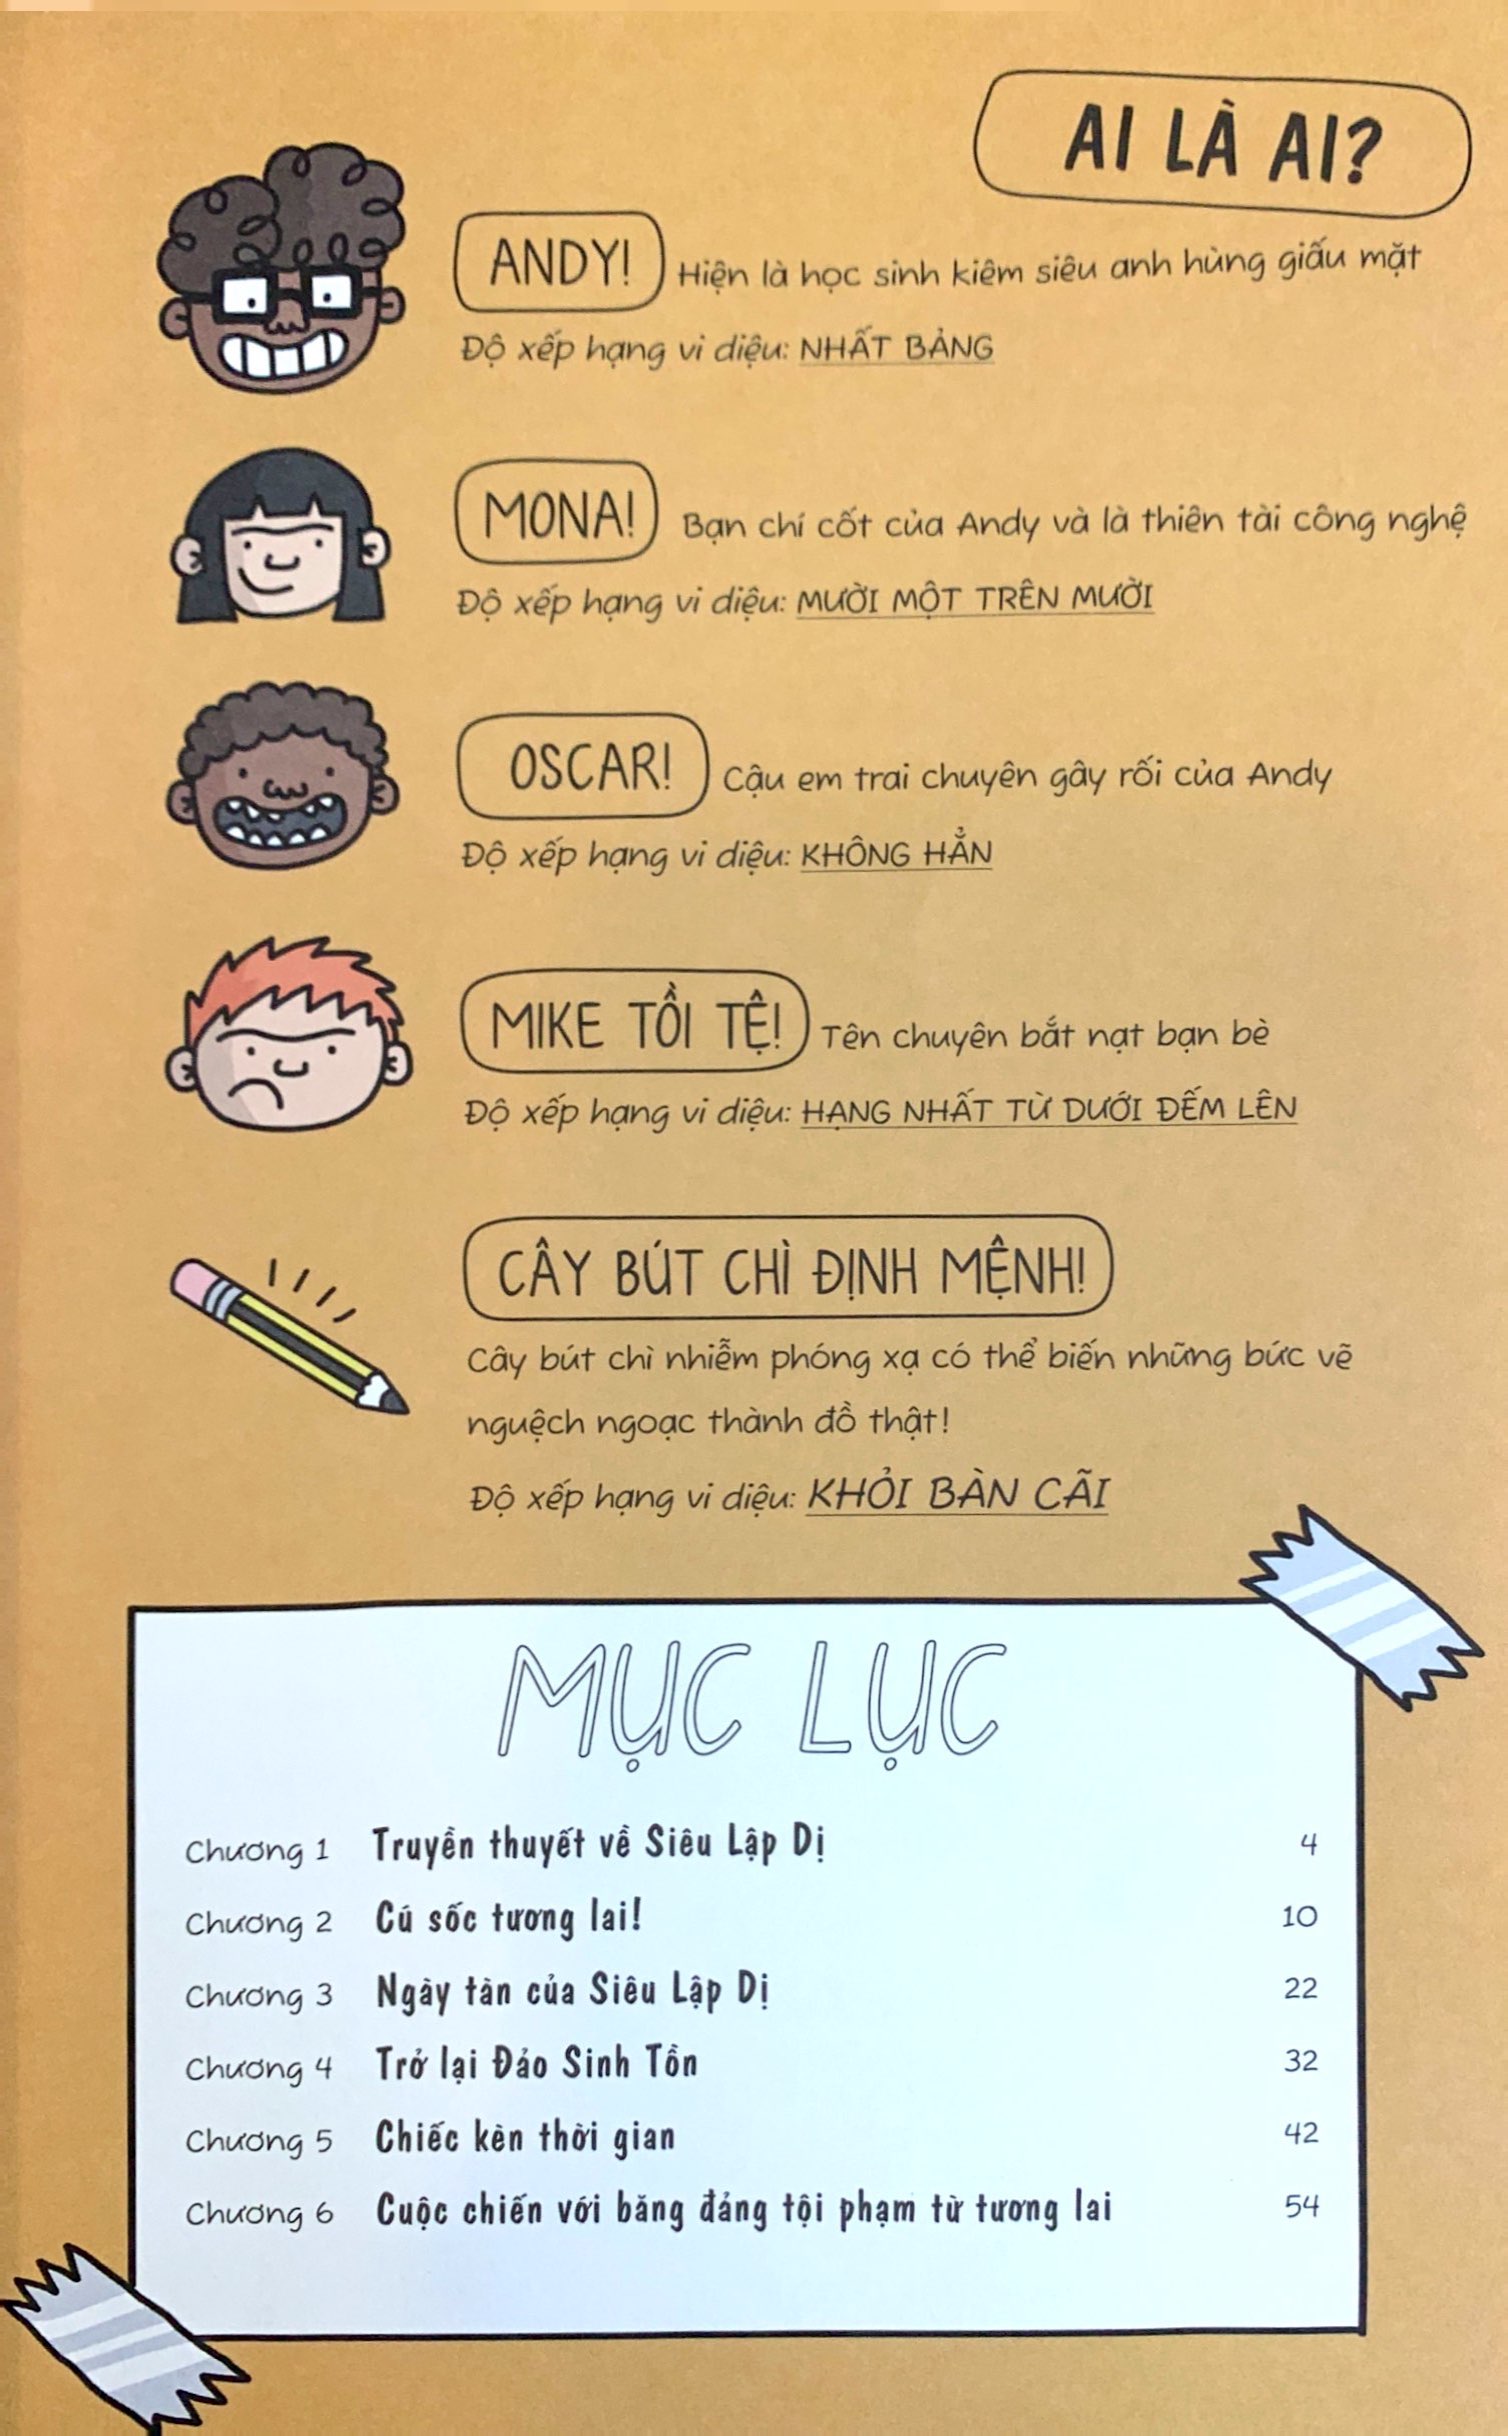 AI LÀ AI?
ANDY! Hiện là học sinh kiêm siêu anh hùng giấu mặt
Độ xếp hạng vi diệu: NHẤT BẢNG
MONA! Bạn chí cốt của Andy và là thiên tài công nghệ
Độ xếp hạng vi diệu: MƯỜI MỘT TRÊN MƯỜI
OSCAR! Cậu em trai chuyên gây rối của Andy
Độ xếp hạng vi diệu: KHÔNG HẲN
MIKE TỒI TỆ! Tên chuyên bắt nạt bạn bè
Độ xếp hạng vi diệu: HẠNG NHẤT TỪ DƯỚI ĐẾM LÊN
CÂY BÚT CHÌ ĐỊNH MỆNH!
Cây bút chì nhiễm phóng xạ có thể biến những bức vẽ
nguệch ngoạc thành đồ thật!
Độ xếp hạng vi diệu: KHỎI BÀN CÃI
MỤC LỤC
Chương 1 Truyền thuyết về Siêu Lập Dị 4
Chương 2 Cú sốc tương lai! 10
Chương 3 Ngày tàn của Siêu Lập Dị 22
Chương 4 Trở lại Đảo Sinh Tồn 32
Chương 5 Chiếc kèn thời gian 42
Chương 6 Cuộc chiến với băng đảng tội phạm từ tương lai 54